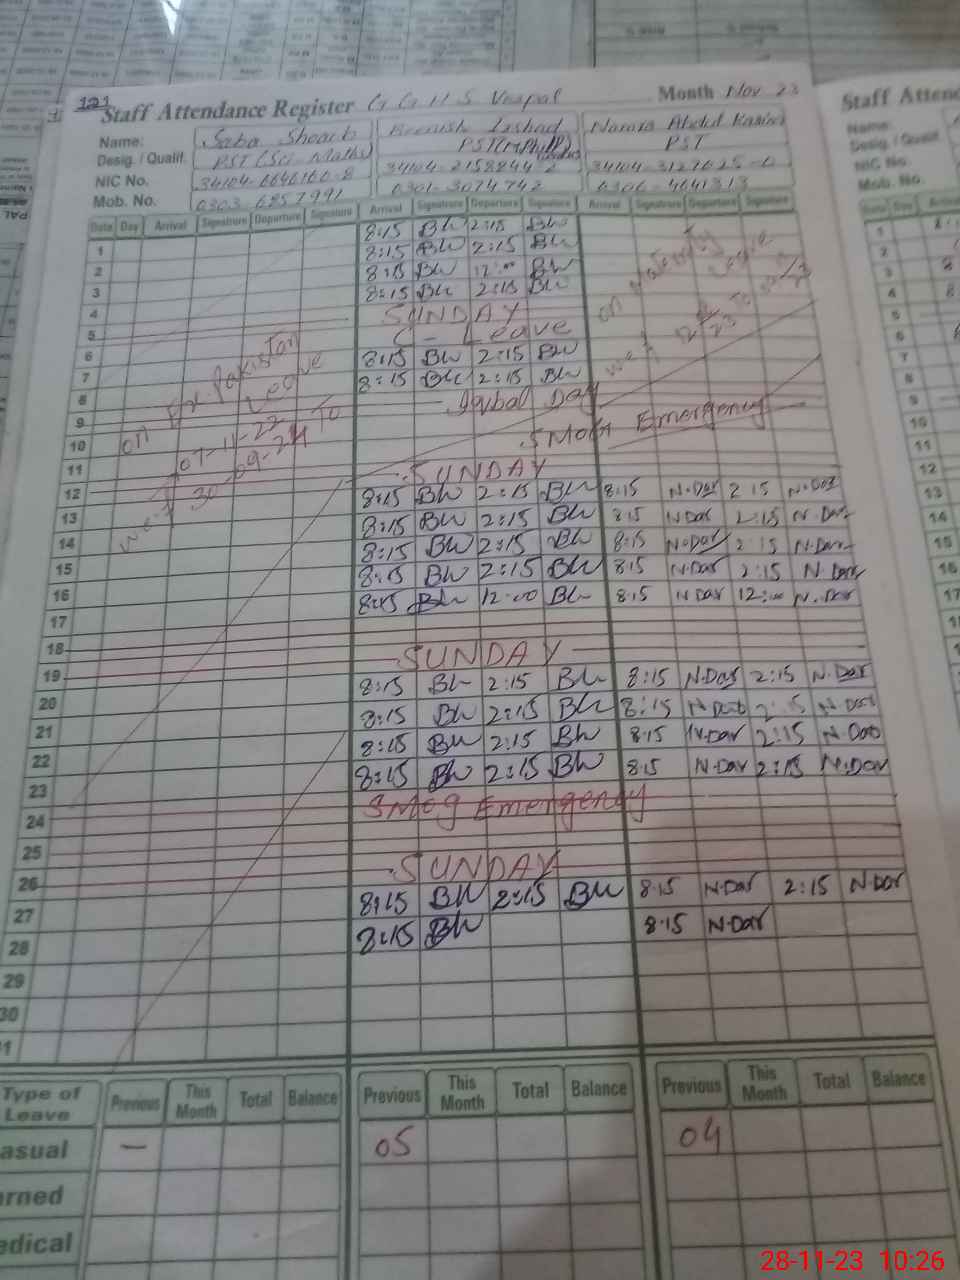 121
Staff Attendance Register G G H S Month Nov 23
Name: Saba Shoaib
Desig. / Qualif. PST (Sci-Maths) PST (M.Phil) PST
NIC No. 34104-
Mob. No. 0303-6857991 0301-3074742
Date Day Arrival Signature Departure Signature Arrival Signature Departure Signature Arrival Signature Departure Signature
1 8:15 BW 2:15 BW
2 8:15 BW 2:15 BW
3 8:15 BW 12:00 BW
4 8:15 BW 2:15 BW
5 SUNDAY
6 C-Leave
7 8:15 BW 2:15 BW
8 8:15 BW 2:15 BW
9 Iqbal Day
10 Smog Emergency
11
12 SUNDAY
on Ex-Pakistan Leave
w.e.f 07-11-22 To 30-09-24
on Maternity Leave
13 8:15 BW 2:15 BW 8:15 N-Dar 2:15 N-Dar
14 8:15 BW 2:15 BW 8:15 N-Dar 2:15 N-Dar
15 8:15 BW 2:15 BW 8:15 N-Dar 2:15 N-Dar
16 8:15 BW 2:15 BW 8:15 N-Dar 2:15 N-Dar
17 8:15 BW 12:00 BW 8:15 N-Dar 12:00 N-Dar
18
19 SUNDAY
20 8:15 BW 2:15 BW 8:15 N-Dar 2:15 N-Dar
21 8:15 BW 2:15 BW 8:15 N-Dar 2:15 N-Dar
22 8:15 BW 2:15 BW 8:15 N-Dar 2:15 N-Dar
23 8:15 BW 2:15 BW 8:15 N-Dar 2:15 N-Dar
24 Smog Emergency
25
26 SUNDAY
27 8:15 BW 2:15 BW 8:15 N-Dar 2:15 N-Dar
28 8:15 BW 8:15 N-Dar
29
30
1
Type of Leave Previous This Month Total Balance Previous This Month Total Balance Previous This Month Total Balance
asual — 05 04
rned
edical
Staff Atten
Name:
Desig. / Qualif.
NIC No.
Mob. No.
28-11-23 10:26